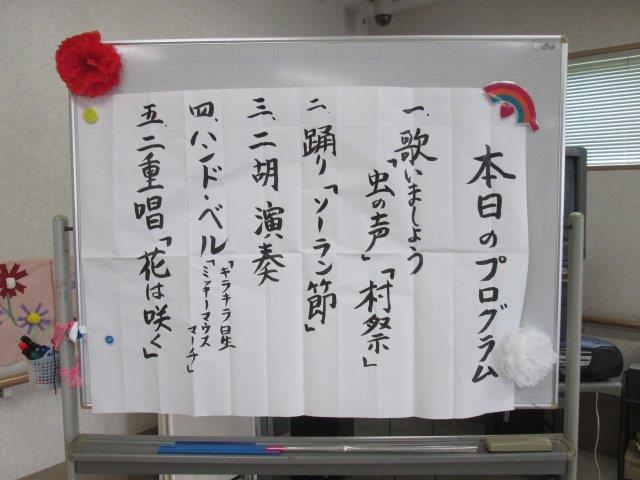 本日のプログラム
一、歌いましょう
「虫の声」「村祭」
二、踊り「ソーラン節」
三、二胡 演奏
四、ハンド・ベル「キラキラ星」
「ミッキーマウス
マーチ」
五、二重唱「花は咲く」